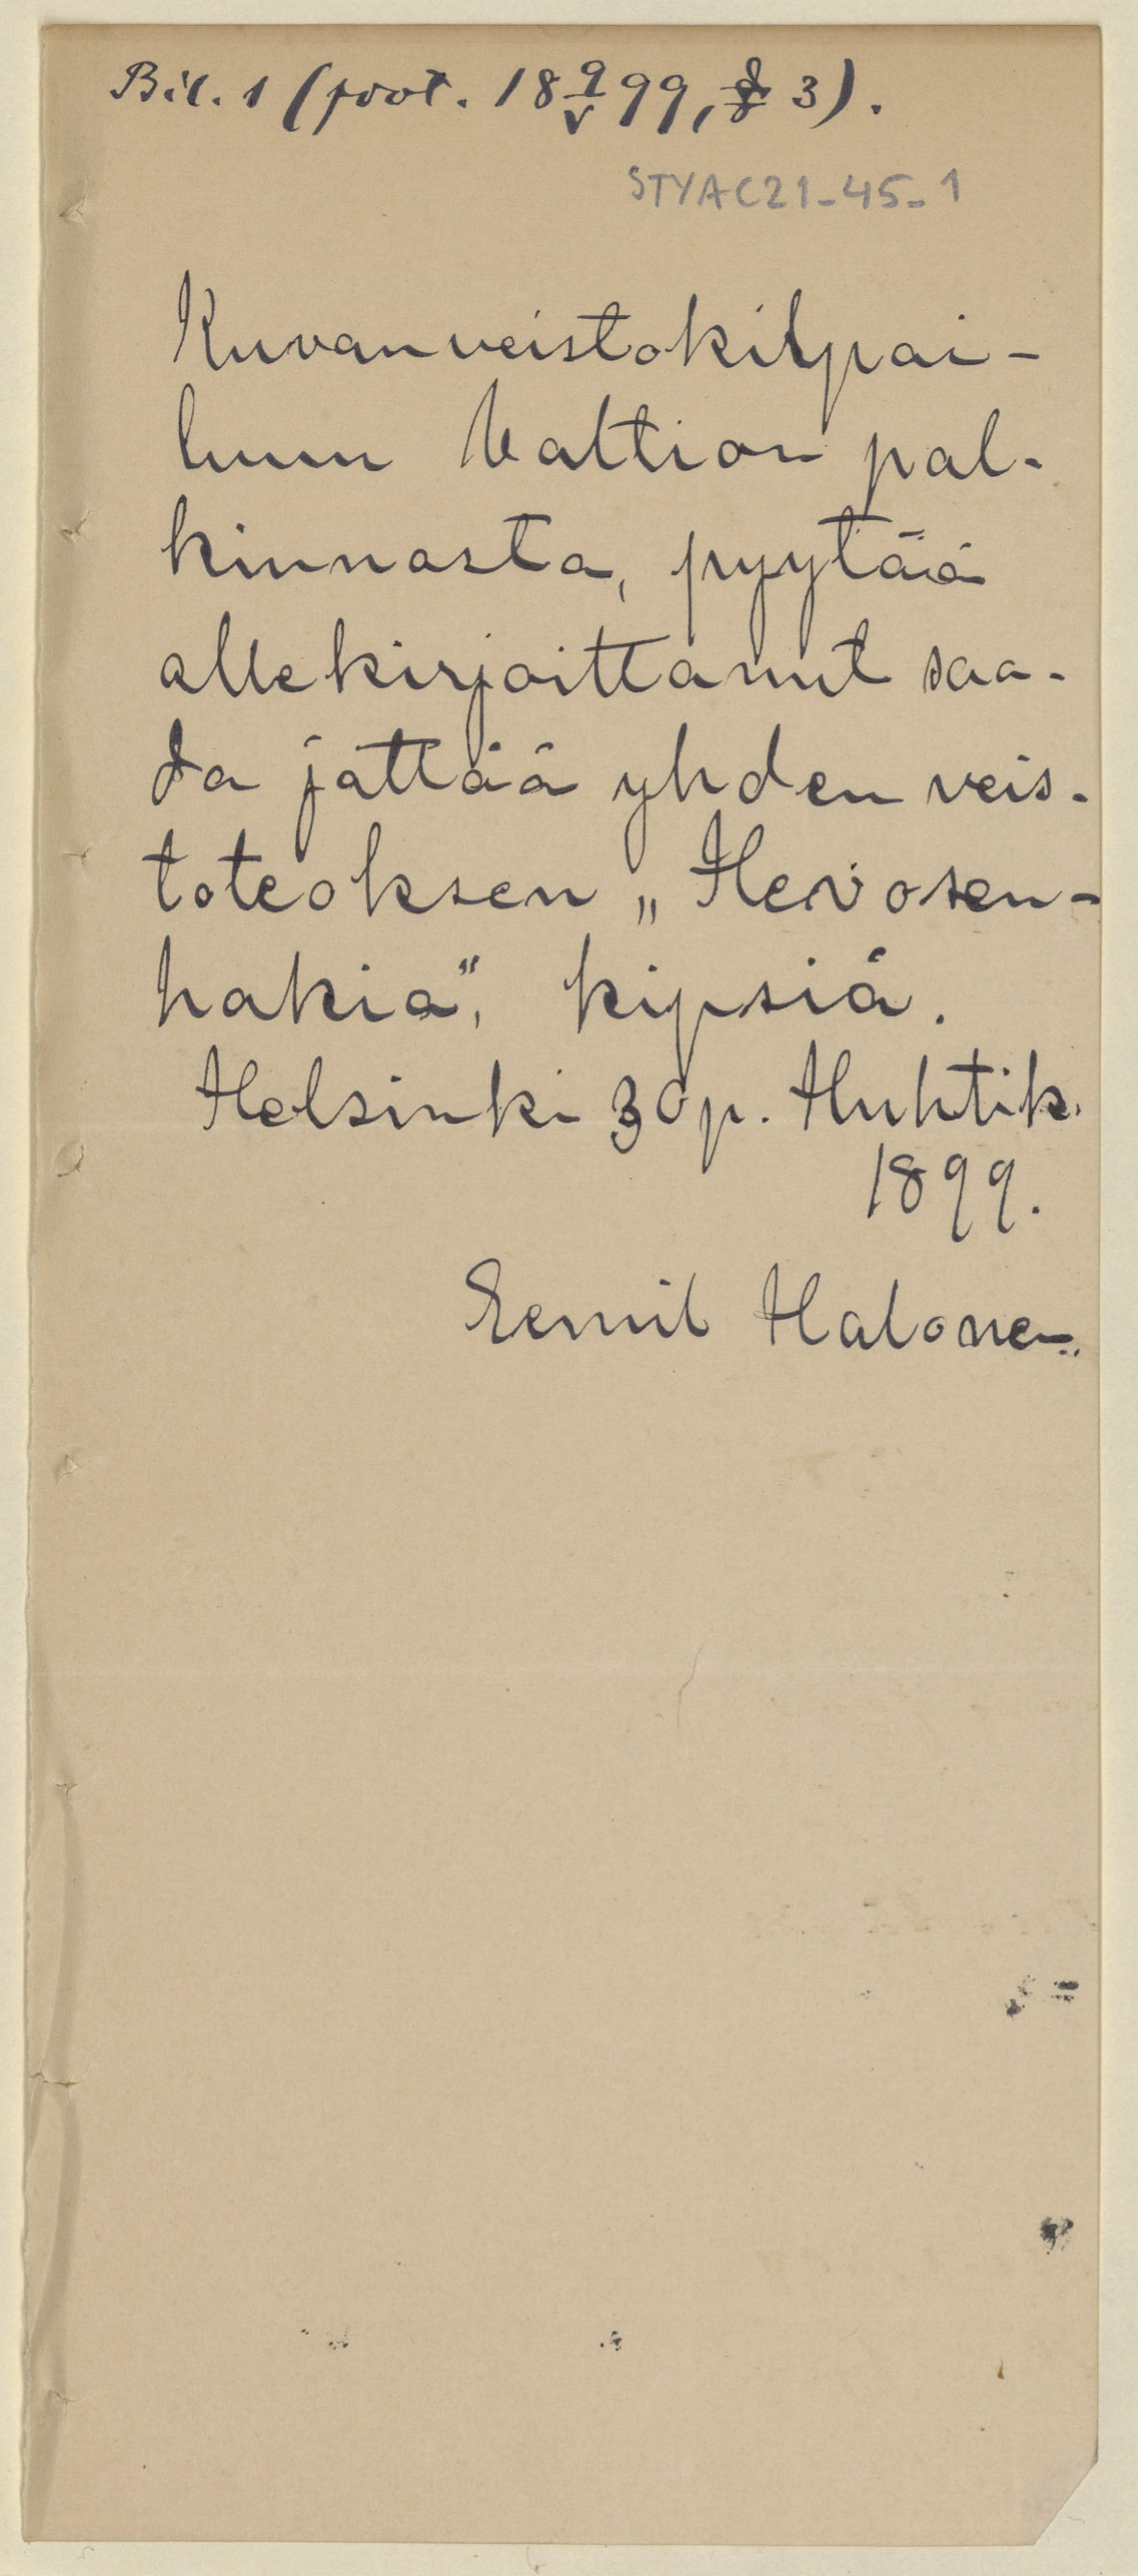 Bil. 1 (prot. 18 9/V 99, § 3).
STYA C21-45-1
Kuvanveistokilpai-
luun Valtion pal-
kinnosta, pyytää
allekirjoittanut saa-
da jättää yhden veis-
toteoksen „Hevosen-
hakia“, kipsiä.
Helsinki 30 p. Huhtik.
1899.
Eemil Halonen.